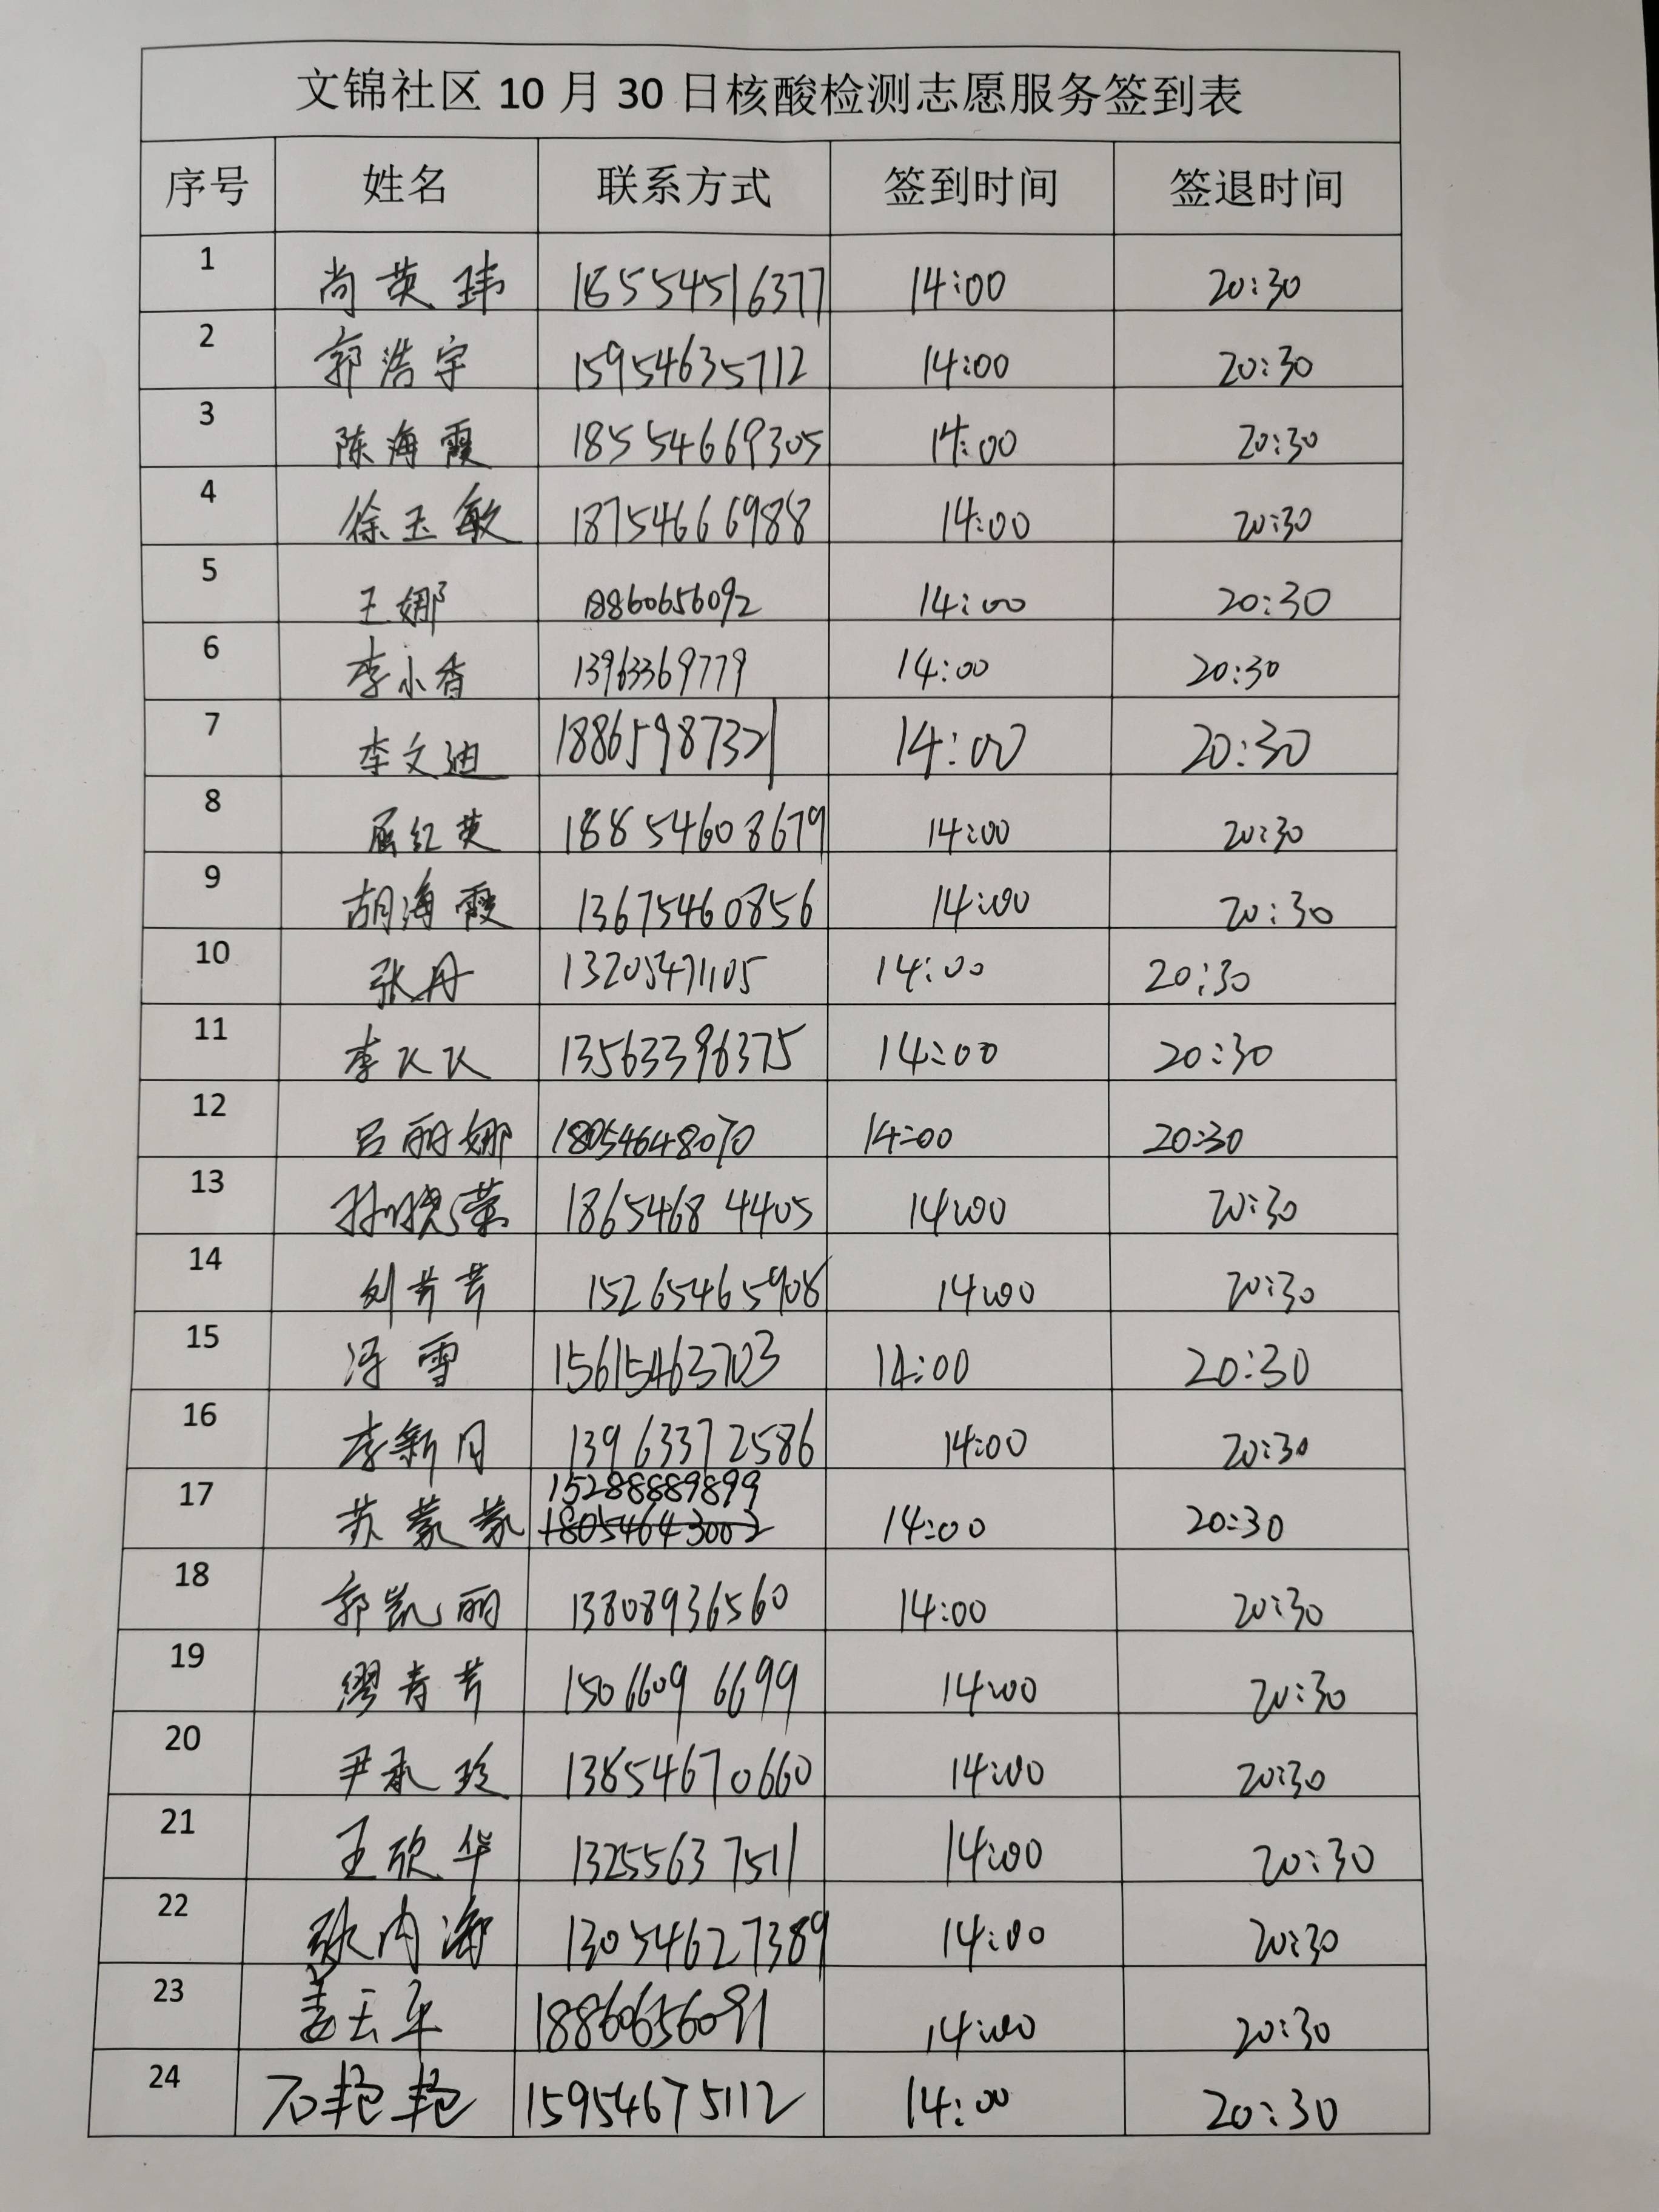 文锦社区 10 月 30 日核酸检测志愿服务签到表
序号 姓名 联系方式 签到时间 签退时间
1 尚英玮 18554516377 14:00 20:30
2 郭浩宇 15954635712 14:00 20:30
3 陈海霞 18554669305 14:00 20:30
4 徐玉敏 18754666988 14:00 20:30
5 王娜 18860656092 14:00 20:30
6 李小香 13963369779 14:00 20:30
7 李文迪 18865987321 14:00 20:30
8 屈红英 18854608679 14:00 20:30
9 胡海霞 13675460856 14:00 20:30
10 张丹 13205471105 14:00 20:30
11 13563396375 14:00 20:30
12 吕丽娜 18054648070 14:00 20:30
13 孙晓荣 18654684405 14:00 20:30
14 刘芹芹 15265465908 14:00 20:30
15 冯雪 15615463703 14:00 20:30
16 李新月 13963372586 14:00 20:30
15288889899
17 苏蒙蒙 18054643002 14:00 20:30
18 郭凯丽 13808936560 14:00 20:30
19 缪青芹 15066096699 14:00 20:30
20 尹承玲 13854670660 14:00 20:30
21 王欣华 13255637511 14:00 20:30
22 张内海 13054627389 14:00 20:30
23 姜云平 18860656091 14:00 20:30
24 石艳艳 15954675112 14:00 20:30